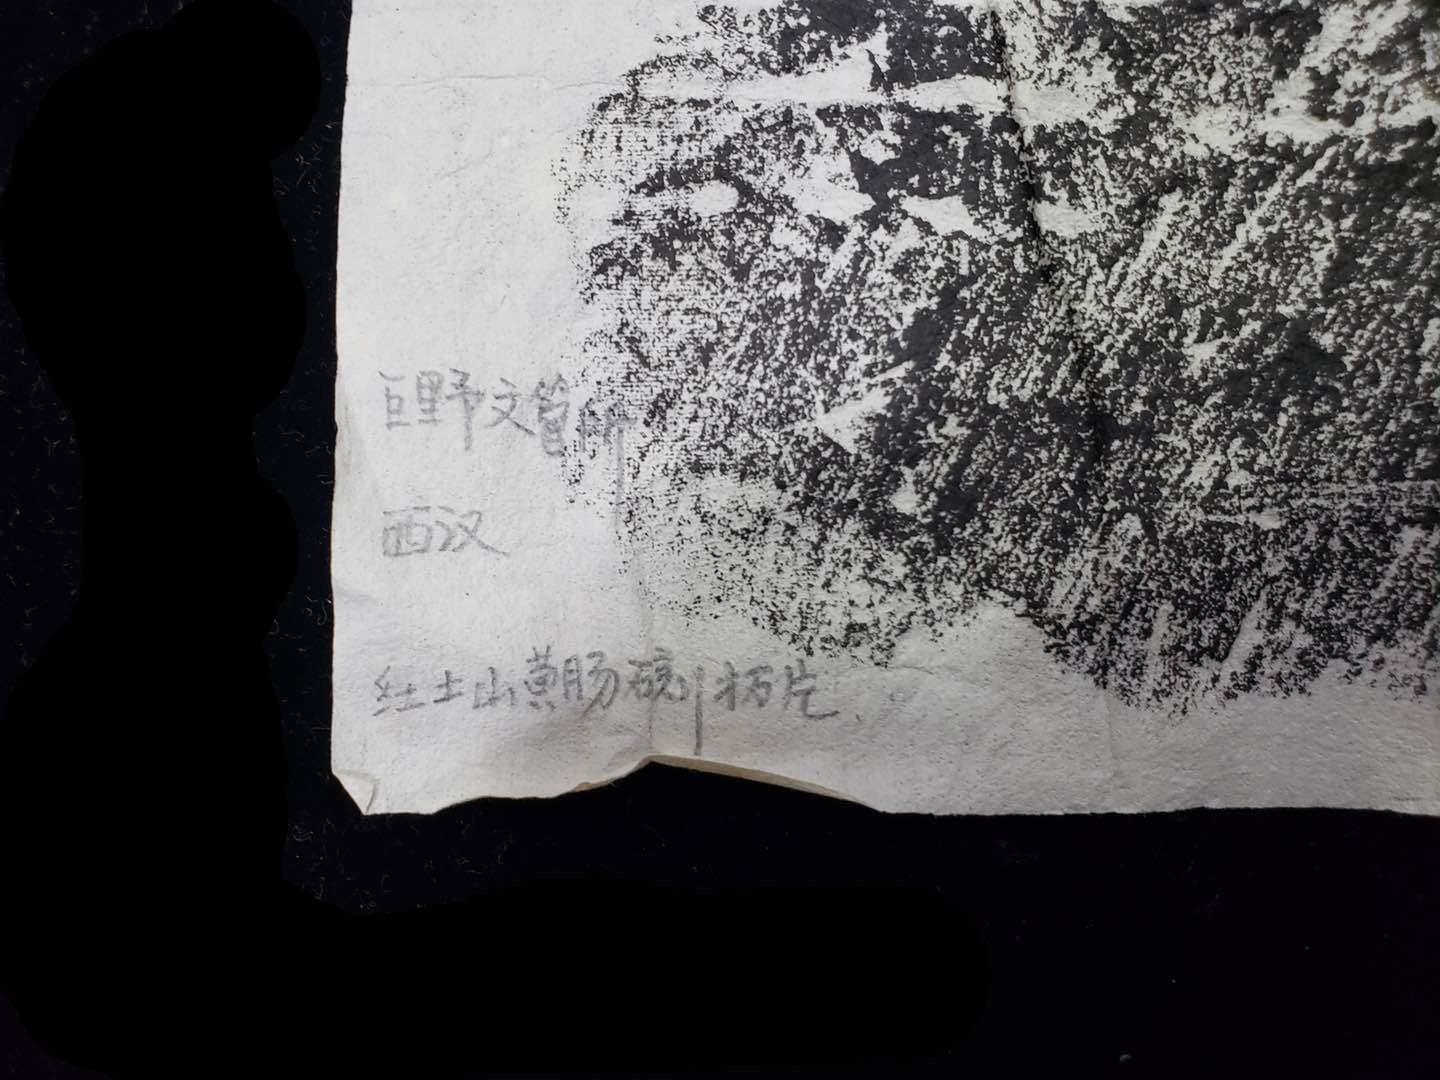 巨野文管所
西汉
红土山黄肠石刻拓片